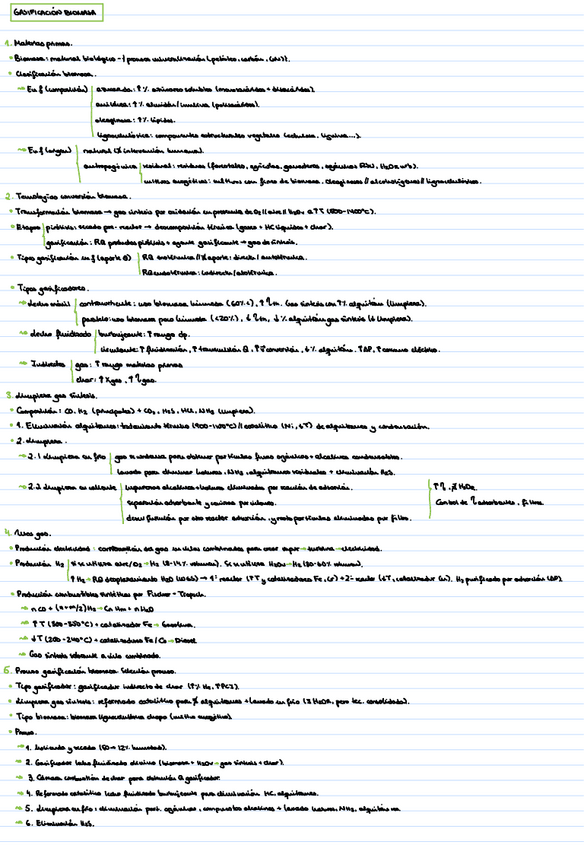 GASIFICACIÓN BIOMASA
1. Materias primas.
• Biomasa: material biológico - { proceso mineralización (petróleo, carbón, GN)}.
• Clasificación biomasa.
→ En f (composición) azucarada: ↑% azúcares solubles (monosacáridos + disacáridos).
amilácea: ↑% almidón/inulina (polisacáridos).
oleaginosa: ↑% lípidos.
lignocelulósica: componentes estructurales vegetales (celulosa, lignina...).
→ En f (origen) natural (∄ intervención humana).
antropogénica residual: residuos (forestales, agrícolas, ganaderos, orgánicos RSU, H₂O urb).
cultivos energéticos: cultivos con fines de biomasa. oleaginosas // alcoholígenos // lignocelulósicos.
2. Tecnologías conversión biomasa.
• Transformación biomasa → gas síntesis por oxidación en presencia de O₂ // aire // H₂Ov a ↑T (800-1400°C).
• Etapas pirólisis: secado por reactor → descomposición térmica (gases + HC líquidos + char).
gasificación: RQ productos pirólisis + agente gasificante → gas de síntesis.
• Tipos gasificación en f (aporte Q) RQ exotérmica // ∄ aporte: directa / autotérmica.
RQ endotérmica: indirecta / alotérmica.
• Tipos gasificadores.
→ lecho móvil contracorriente: uso biomasa húmeda (60%), ↑ηth. Gas síntesis con ↑% alquitrán (limpieza).
paralelo: uso biomasa poco húmeda (<20%), ↓ηth, ↓% alquitrán gas síntesis (↓ limpieza).
→ lecho fluidizado burbujeante: ↑ rango dp.
circulante: ↑ fluidización, ↑ transmisión Q, ↑% conversión, ↓% alquitrán, ↑ΔP, ↑ consumo eléctrico.
→ Indirectos gas: ↑ rango materias primas
char: ↑χgas, ↑ηgas.
3. Limpieza gas síntesis.
• Composición: CO, H₂ (principales) + CO₂, H₂S, HCl, NH₃ (limpieza).
• 1. Eliminación alquitranes: tratamiento térmico (900-1100°C) // catalítico (Ni, ↓T) de alquitranes y condensación.
• 2. Limpieza.
→ 2.1 Limpieza en frío gas se enfría para obtener partículas finas orgánicas + alcalinos condensables.
lavado para eliminar haluros, NH₃, alquitranes residuales + eliminación H₂S.
→ 2.2 Limpieza en caliente vaporosos alcalinos + haluros eliminados por reacción de adsorción.
separación adsorbente y cenizas por ciclones.
desulfuración por otro reactor adsorción, y resto partículas eliminadas por filtro.
↑η, ∄ H₂Ores
Control de η adsorbentes, filtros.
4. Usos gas.
• Producción electricidad: combustión del gas en ciclos combinados para crear vapor → turbina → electricidad.
• Producción H₂ si se utiliza aire/O₂ → H₂ (8-14% volumen). Si se utiliza H₂Ov → H₂ (30-60% volumen).
↑H₂ → RQ desplazamiento H₂O (WGS) → 1º reactor (↑T y catalizadores Fe, Cr) + 2º reactor (↓T, catalizador Cu). H₂ purificado por adsorción (ΔP).
• Producción combustibles sintéticos por Fischer-Tropsch.
→ nCO + (n+m/2) H₂ → CnHm + nH₂O
→ ↑T (300-350°C) + catalizador Fe → Gasolina.
→ ↓T (200-240°C) + catalizadores Fe/Co → Diésel
→ Gas síntesis sobrante a ciclo combinado.
5. Proceso gasificación biomasa. Selección proceso.
• Tipo gasificador: gasificador indirecto de char (↑% H₂, ↑PCI).
• Limpieza gas síntesis: reformado catalítico para ∄ alquitranes + lavado en frío (∃ H₂Ores, pero tec. consolidada).
• Tipo biomasa: biomasa lignocelulósica chopo (cultivo energético).
• Proceso.
→ 1. Astillado y secado (50 → 12% humedad).
→ 2. Gasificador lecho fluidizado circulante (biomasa + H₂Ov → gas síntesis + char).
→ 3. Cámara combustión de char para obtención Q gasificador.
→ 4. Reformado catalítico lecho fluidizado burbujeante para eliminación HC, alquitranes.
→ 5. Limpieza en frío: eliminación part. orgánicas, compuestos alcalinos + lavado haluros, NH₃, alquitranes
→ 6. Eliminación H₂S.